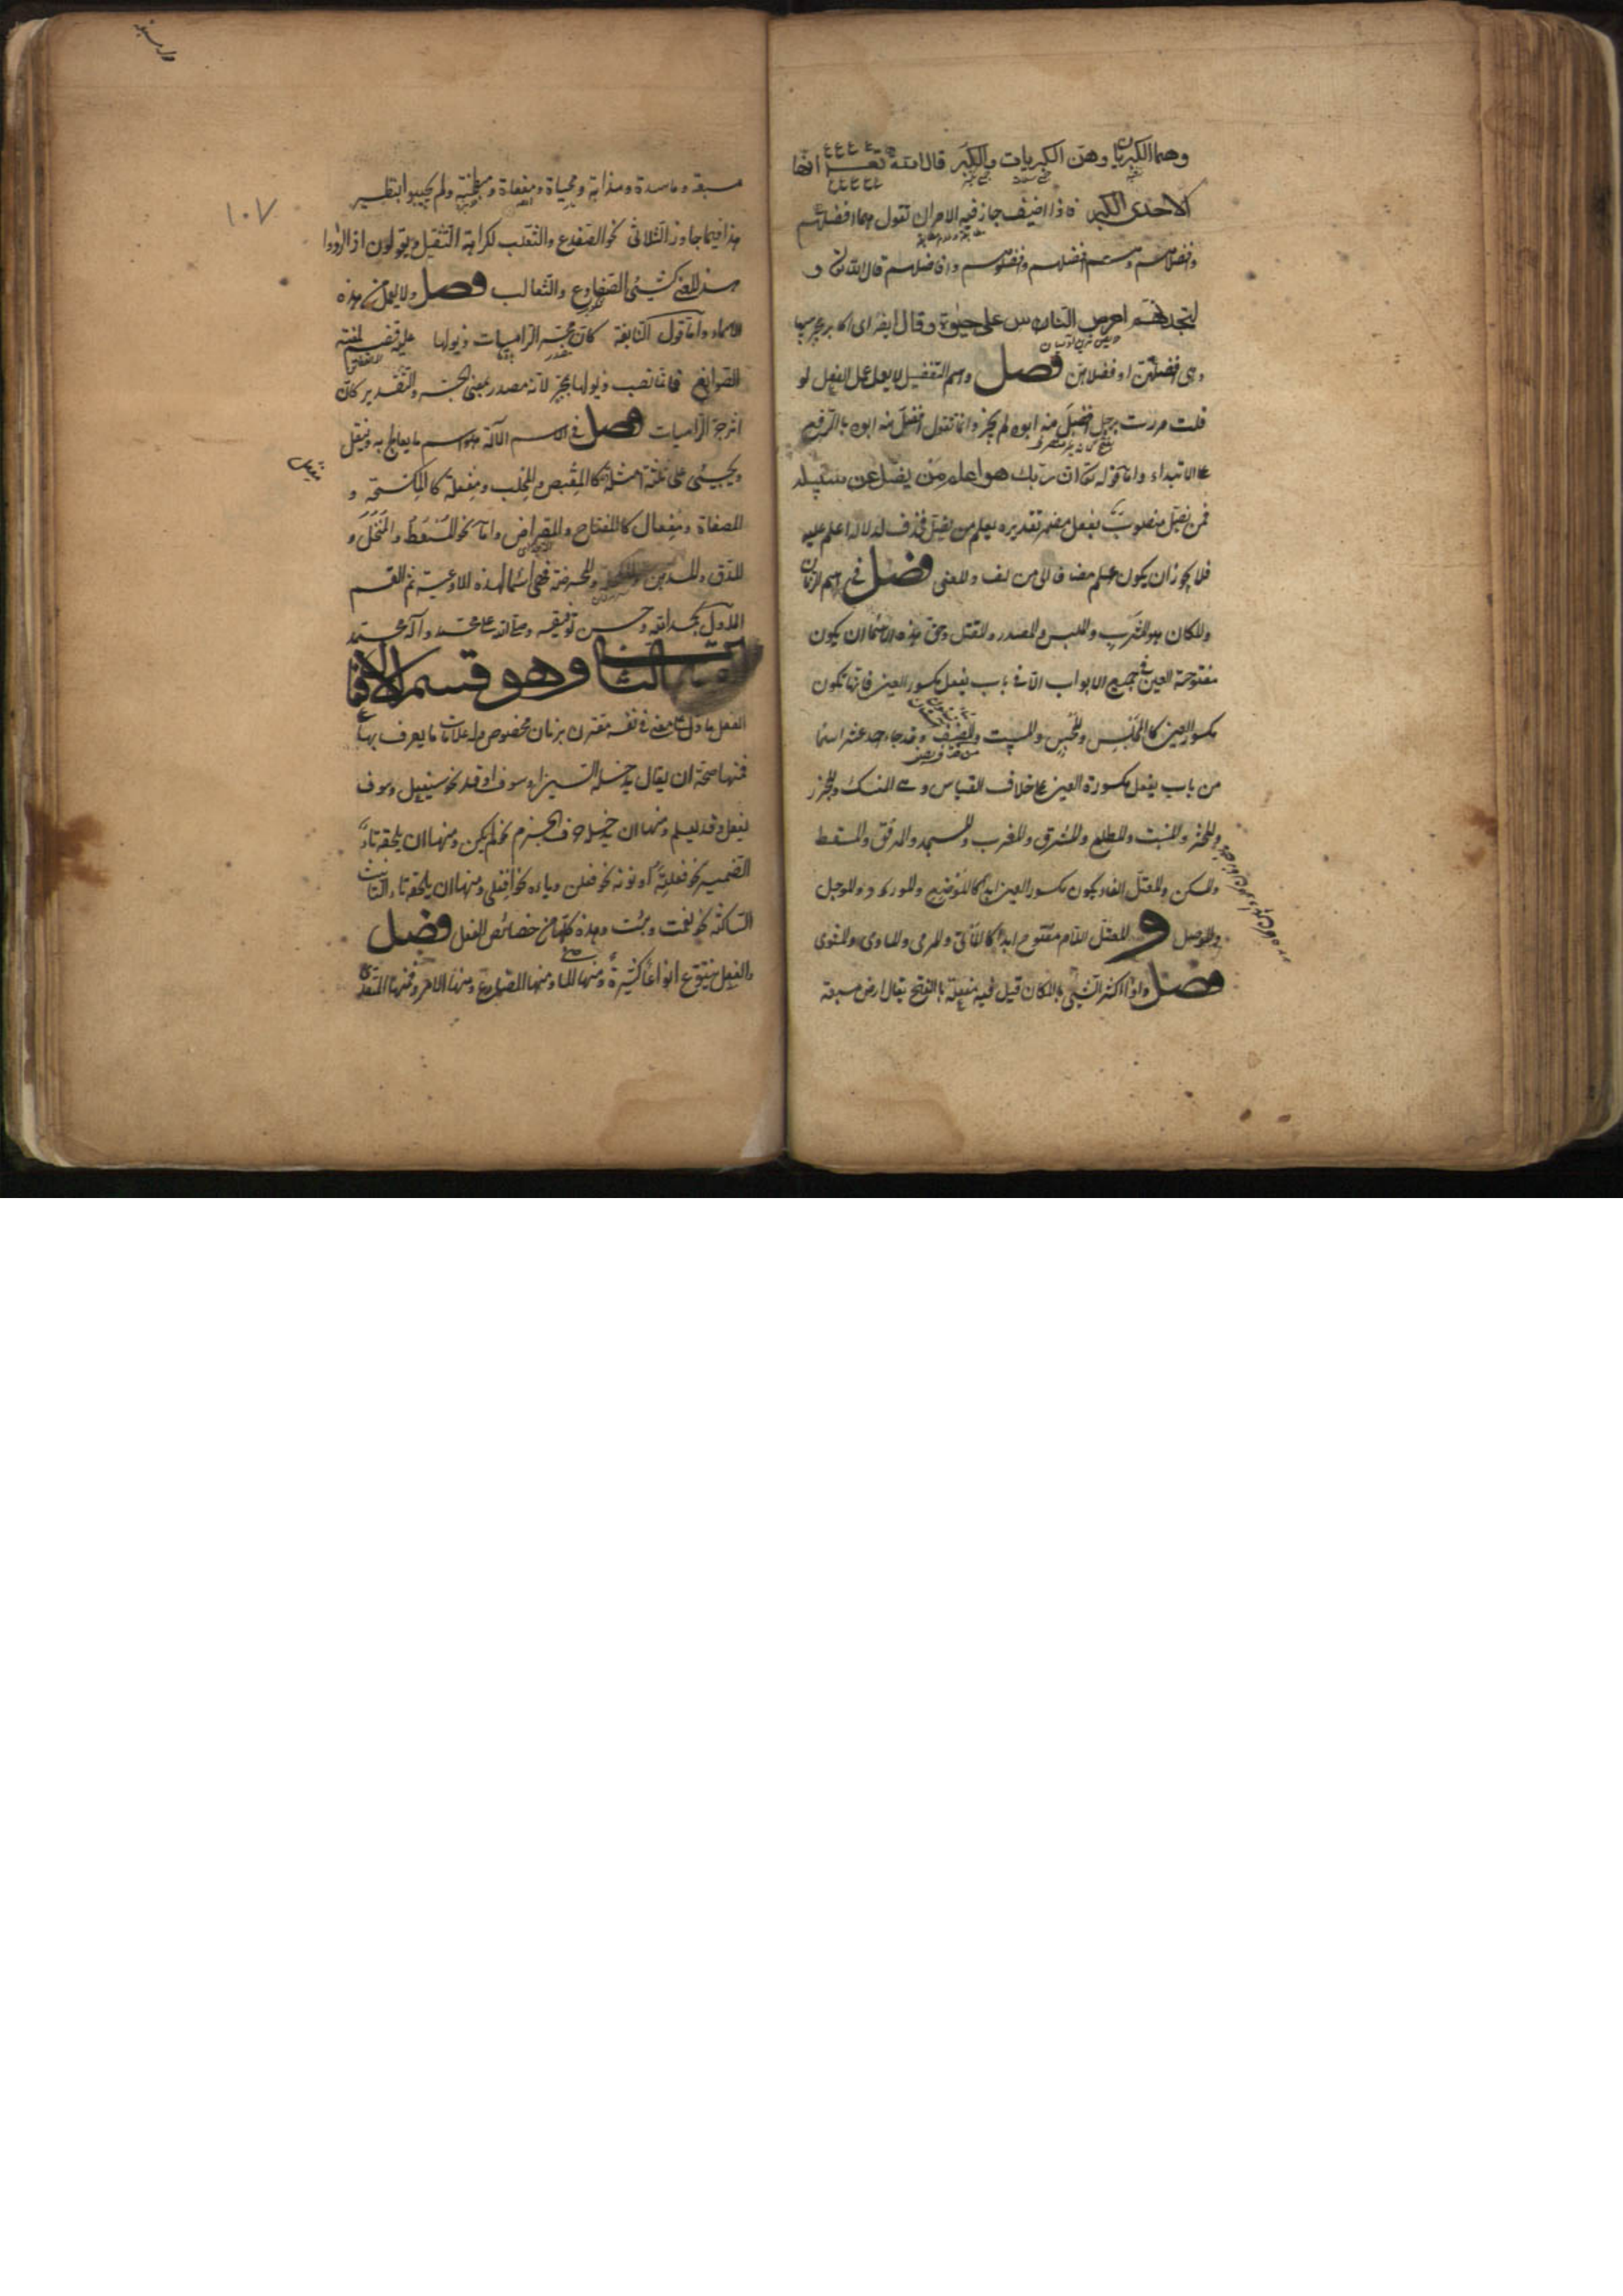 وهما الكبريان وهن الكبريات والكبر قال الله تعالى انها
لاحدى الكبر فاذا اضيف جاز فيه الامران تقول هما افضلهم
وافضلاهم وهم افضلهم وافضلوهم وافاضلهم قال الله تعالى و
لتجدنهم احرص الناس على حيوة وقال ايضا اى اكابر مجرميها
وهى فضلهن او فضلاهن فصل واسم التفضيل لا يعمل عمل الفعل لو
قلت مررت برجل افضل منه ابوه لم يجز وانما تقول افضل منه ابوه بالرفع
على الابتداء واما قوله تعالى ان ربك هو اعلم من يضل عن سبيله
فمن يضل منصوب بفعل مضمر تقديره يعلم من يضل فحذف لدلالة اعلم عليه
فلا يجوز ان يكون اعلم مضافا الى من لفساد المعنى فصل فى اسم الزمان
والمكان هو المشرب والملبس والمصدر والمقتل وحق هذه الاسماء ان يكون
مفتوحة العين فى جميع الابواب الا فى باب يفعل مكسور العين فانها تكون
مكسور العين كالمجلس والمحبس والمبيت والمصيف وقد جاء احد عشر اسما
من باب يفعل مكسورة العين على خلاف القياس وهى المنسك والمجزر
والمنبت والمطلع والمشرق والمغرب والمسجد والمرفق والمسقط
والمسكن والمعتل الفاء يكون مكسور العين ابدا كالموضع والمورد والموجل
والموصل و المعتل اللام مفتوح ابدا كالمأتى والمرمى والمأوى والمثوى
فصل واذا كثر الشئ بالمكان قيل فيه مفعلة بالفتح يقال ارض مسبعة
١٠٧
مسبعة ومأسدة ومذأبة ومحياة ومفعاة ومبطخة ولم يجيبوا بنظير
هذا فيما جاوز الثلاثى نحو الضفدع والثعلب لكراهة الثقيل ويقولون اذا ارادوا
هذا المعنى كثير الضفادع والثعالب فصل ولا يعمل من هذه
الاسماء واما قول النابغة كان مجر الرامسات ذيولها عليه قضيم نمقته
الصوانع فانما نصب ذيولها بمجر لانه مصدر بمعنى الجر والتقدير كان
اثر جر الرامسات فصل فى الاسم الآلة هو اسم ما يعالج به وينقل
ويجيئ على ثلثة امثلة كالمقبض والمحلب ومفعلة كالمكسحة و
المصفاة ومفعال كالمفتاح والمقراض واما نحو المسعط والمنخل و
المدق والمدهن والمحرضة فهى اسماء لهذه الاوعية تم القسم
الاول بحمد الله وحسن توفيقه وصلى الله على محمد وآله محمد
القسم الثانى وهو قسم الافعال
الفعل ما دل على معنى فى نفسه مقترن بزمان مخصوص وله علامات ما يعرف بها
فمنها صحة ان يقال يدخله السين او سوف او قد نحو سيفعل وسوف
يفعل وقد يعلم ومنها ان يدخله حرف الجزم نحو لم يكن ومنها ان يلحقه تاء
الضمير نحو فعلت او نونه نحو فعلن وياءه نحو افعلى ومنها ان يلحقه تاء التأنيث
الساكنة نحو نعمت وبئست وهذه كلها من خصائص الفعل فصل
والفعل يتنوع انواعا كثيرة ومنها الماضى ومنها المضارع ومنها الامر ومنها المتعدى